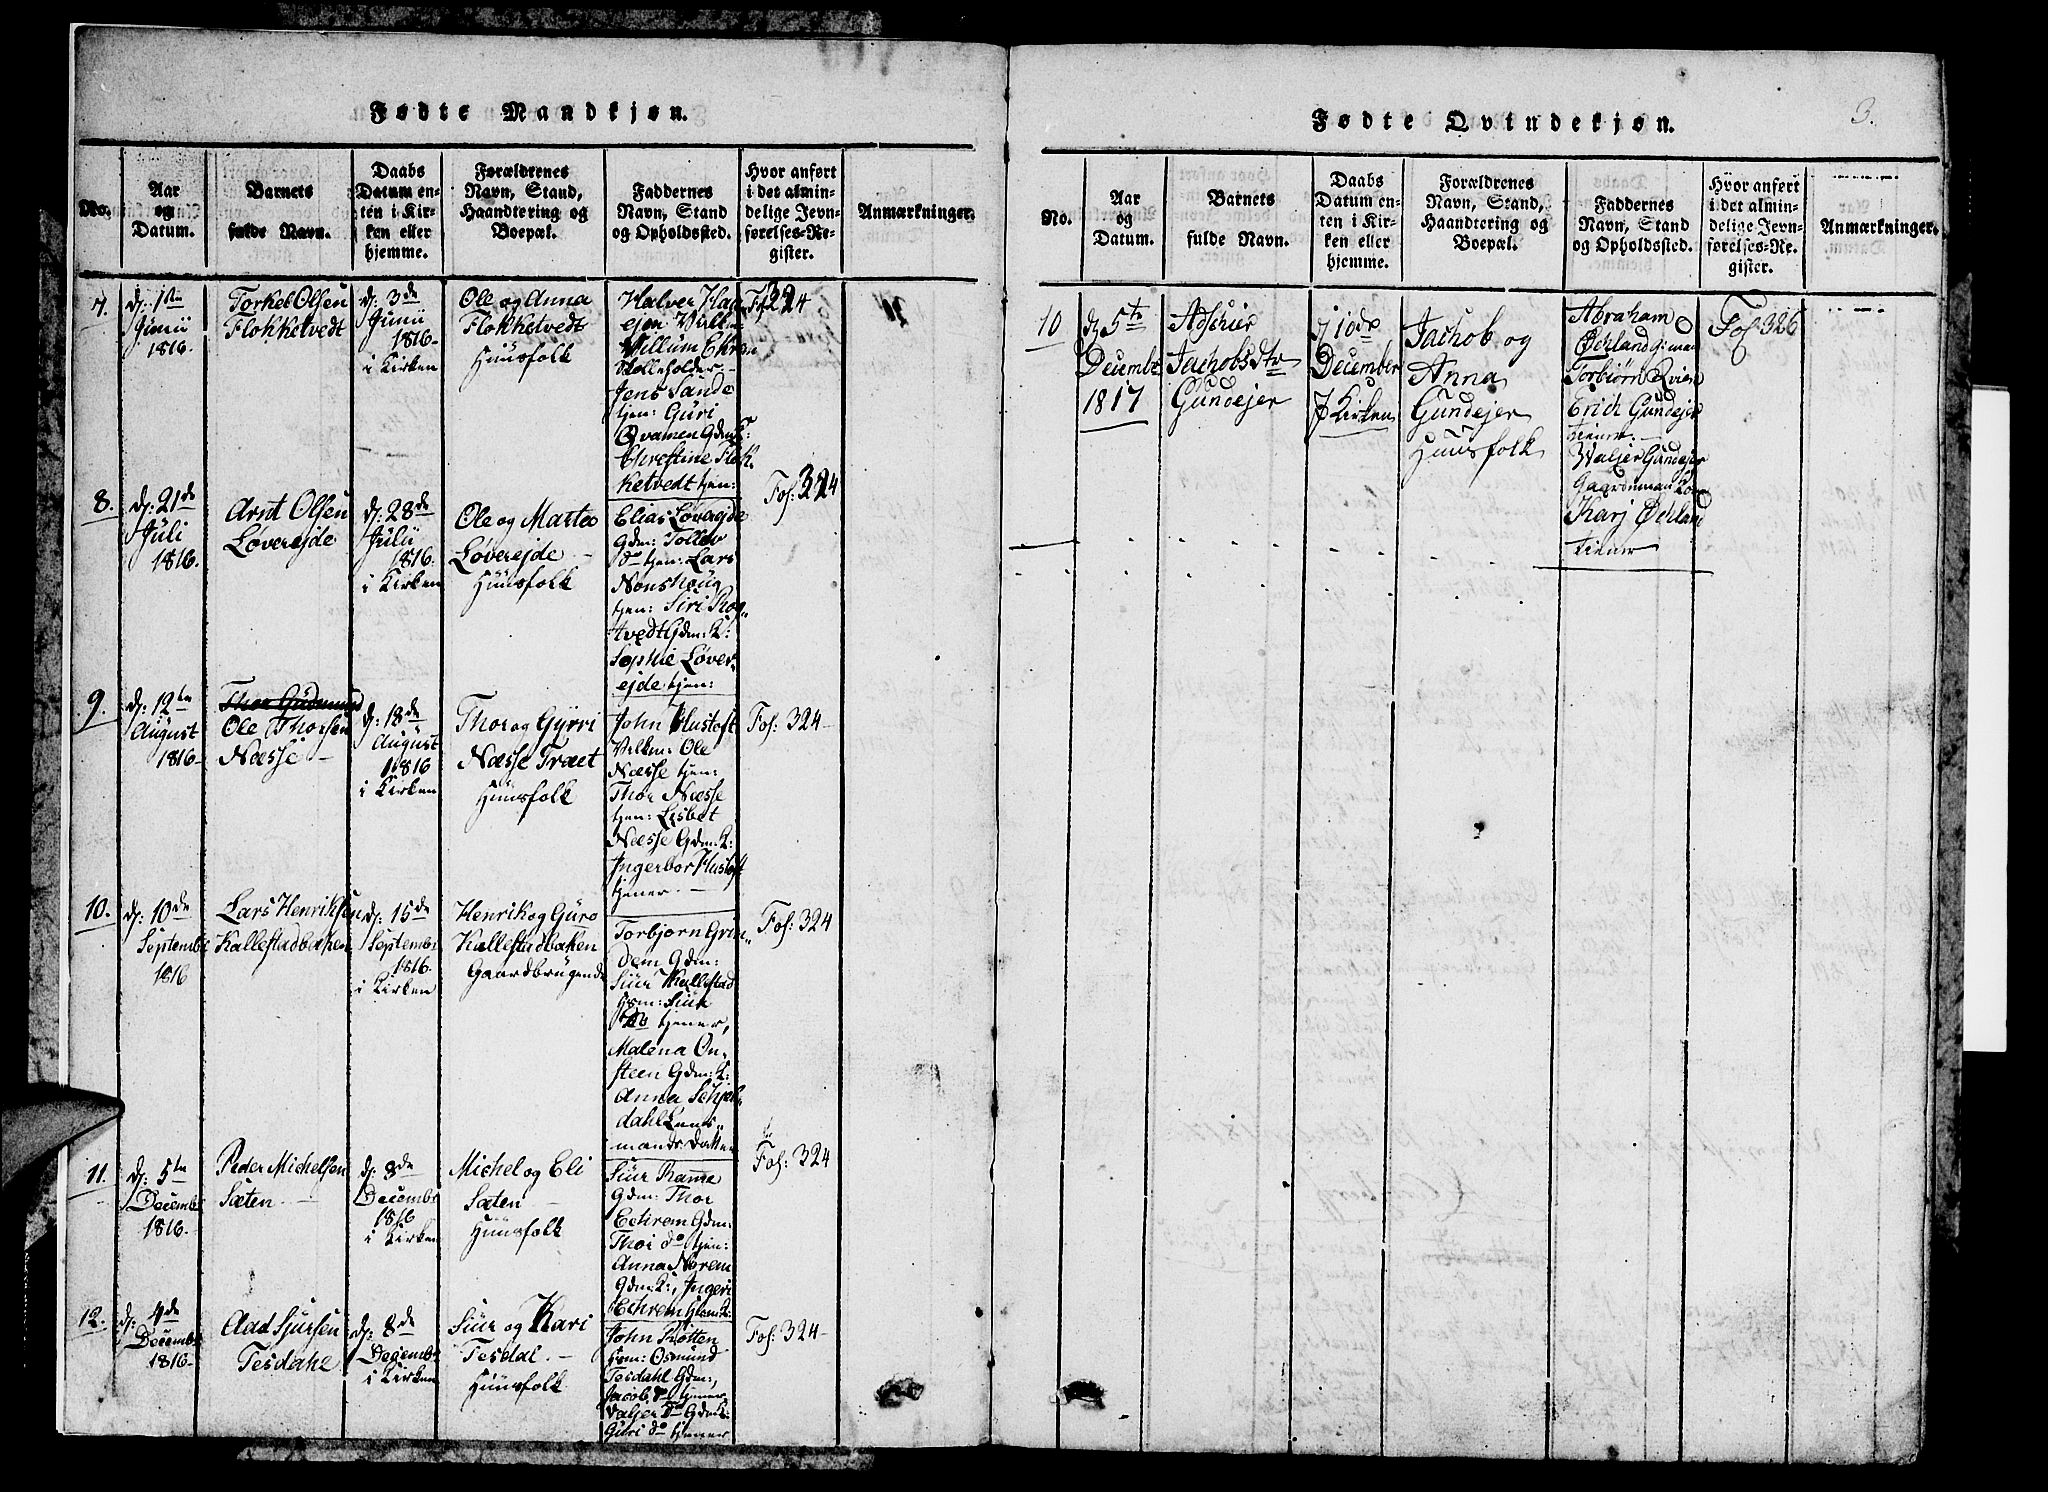 Fødte Mandkjøn.
No.
Aar
og
Datum.
Barnets
fulde Navn.
Daabs
Datum en-
ten i Kir-
ken eller
hjemme.
Forældrenes
Navn, Stand,
Haandtering og
Boepæl.
Faddernes
Navn, Stand
og Opholdssted.
Hvor anført
i det almin-
delige Jevn-
førelses-Re-
gister.
Anmærkninger.
7.
d: 1ste
Junii
1816.
Torkel Olsen
Flokketvedt
d: 3de
Junii
1816
i Kirken
Ole og Anna
Flokketvedt
Huusfolk
Halver
Villum
Jens Sande
tjen: Guri
Qvamen Gdm: K:
Chrestine Flok
ketvedt tjen:
Fol: 324
8.
d: 21de
Juli
1816.
Arnt Olsen
Løverejde
d: 28de
Julii
1816.
i Kirken
Ole og Marte
Løverejde
Huusfolk
Elias Løverejde
Gdm: Tollev
do tjen: Lars
Nonshaug
tjen: Siri
Gdm: K:
Sophie Løver-
ejde tjen:
Fol: 324
9
d: 12te
August
1816
Ole Thorsen
Næsse
d: 18de
August
1816
i Kirken
Thor og Gyrri
Næsse Træet
Huusfolk
John Hustoft
Ole
Næsse tjen:
Thor Næsse
tjen: Lisbet
Næsse Gdm: K:
Ingerbor Hustoft
tjener
Fol: 324
10.
d: 10de
Septembr
1816
Lars Henriksen
Kallestadbaken
d: 15de
Septembr
1816
i Kirken
Henrik og Guro
Kallestadbaken
Gaardbrugende
Torbjorn Grin-
dem Gdm:
Siur Kallestad
tjener,
Malena On-
steen Gdm: K:
Anna
dahl Lens-
mands Datter
Fol: 324
11.
d: 5te
Decembr
1816.
Peder Michelsen
Sæten
d: 8de
Decembr
1816
i Kirken
Michel og Eli
Sæten
Huusfolk
Siur Ramne
Gdm: Thor
Echrem Gdm:
Thoi do tjen:
Anna Norem
Gdm: K:, Ingeri
Echrem
Fol: 324
12.
d: 4de
Decembr
1816
Aad Sjursen
Tesdahl
d: 8de
Decembr
i Kirken
Siur og Kari
Tesdal
Huusfolk
John Røtten
Osmund
Tesdahl Gdm:,
Jacob do tjener
Valjer do Gdm: K:
Guri do tjener
Fol: 324
Fødte Qvindekjøn.
3.
No.
Aar
og
Datum.
Barnets
fulde Navn.
Daabs
Datum en-
ten i Kir-
ken eller
hjemme.
Forældrenes
Navn, Stand,
Haandtering og
Boepæl.
Faddernes
Navn, Stand
og Opholdssted.
Hvor anført
i det almin-
delige Jevn-
førelses-Re-
gister.
Anmærkninger.
10
d 5te
Decembr
1817
Adschier
Jachobsdtr
Gundejer
d 10de
December
J Kirken
Jachob og
Anna
Gundejer
Huusfolk
Abraham
Øchland
Torbiørn
Erich Gundejer
tiener
Waljer Gundejer
Gaardmans Kone
Karj Øchland
tiener
Fol: 326